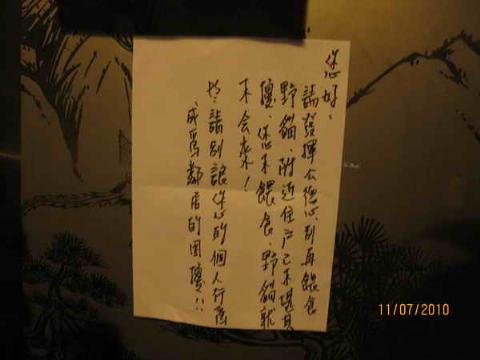 您好:
請發揮公德心別再餵食
野貓、附近住戶已不堪其
擾、您不餵食、野貓就
不会來!
請別讓您的個人行為
成為鄰居的困擾!!
11/07/2010